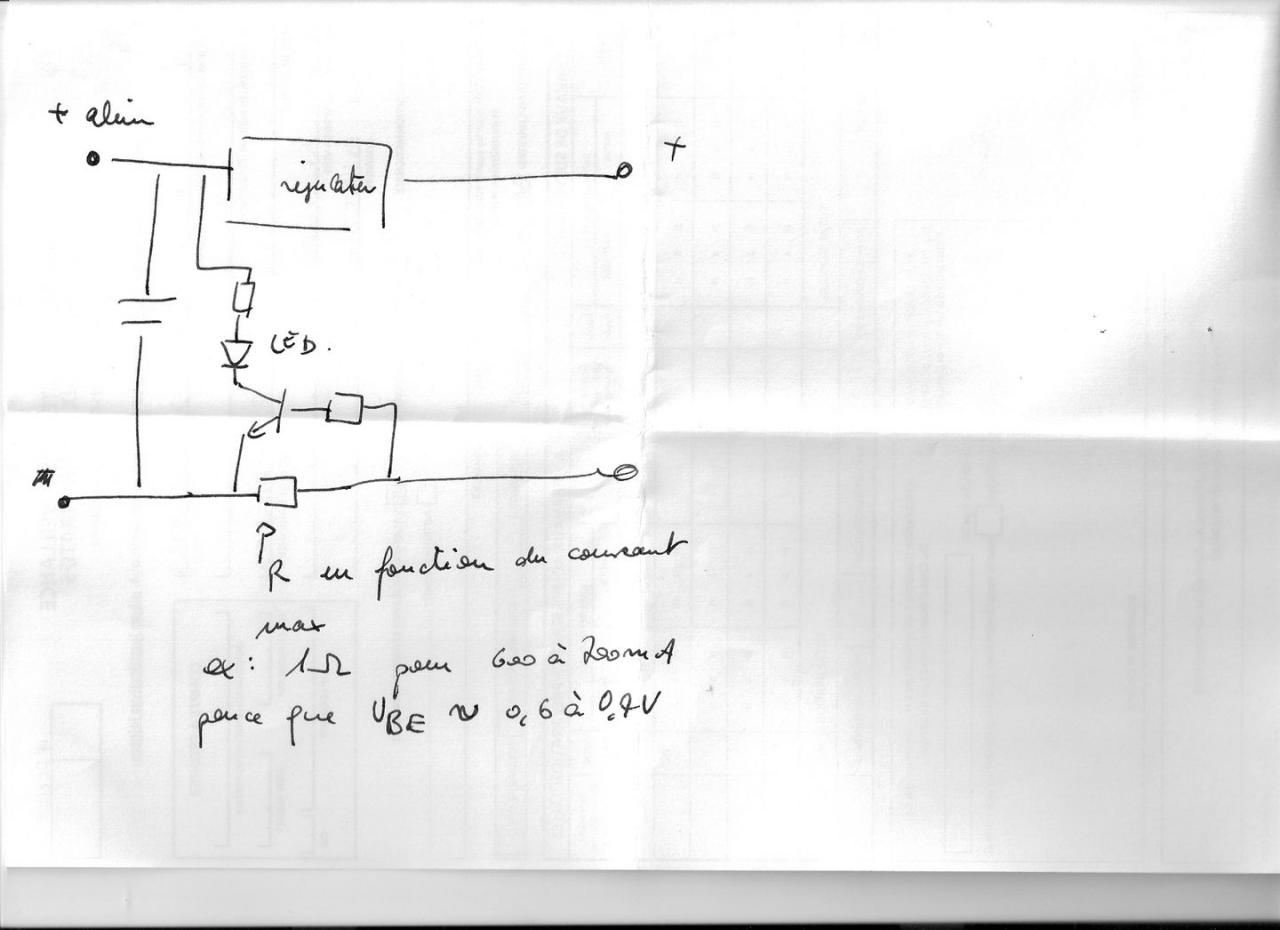 + alim
+
régulateur
LED.
R en fonction du courant
max
ex: 1Ω pour 600 à 700mA
parce que UBE ≈ 0,6 à 0,7V